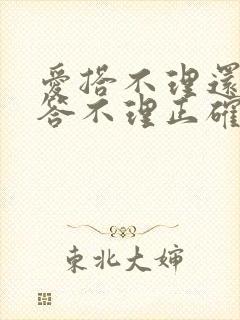 愛搭不理還
答不理正確
東北大嬸